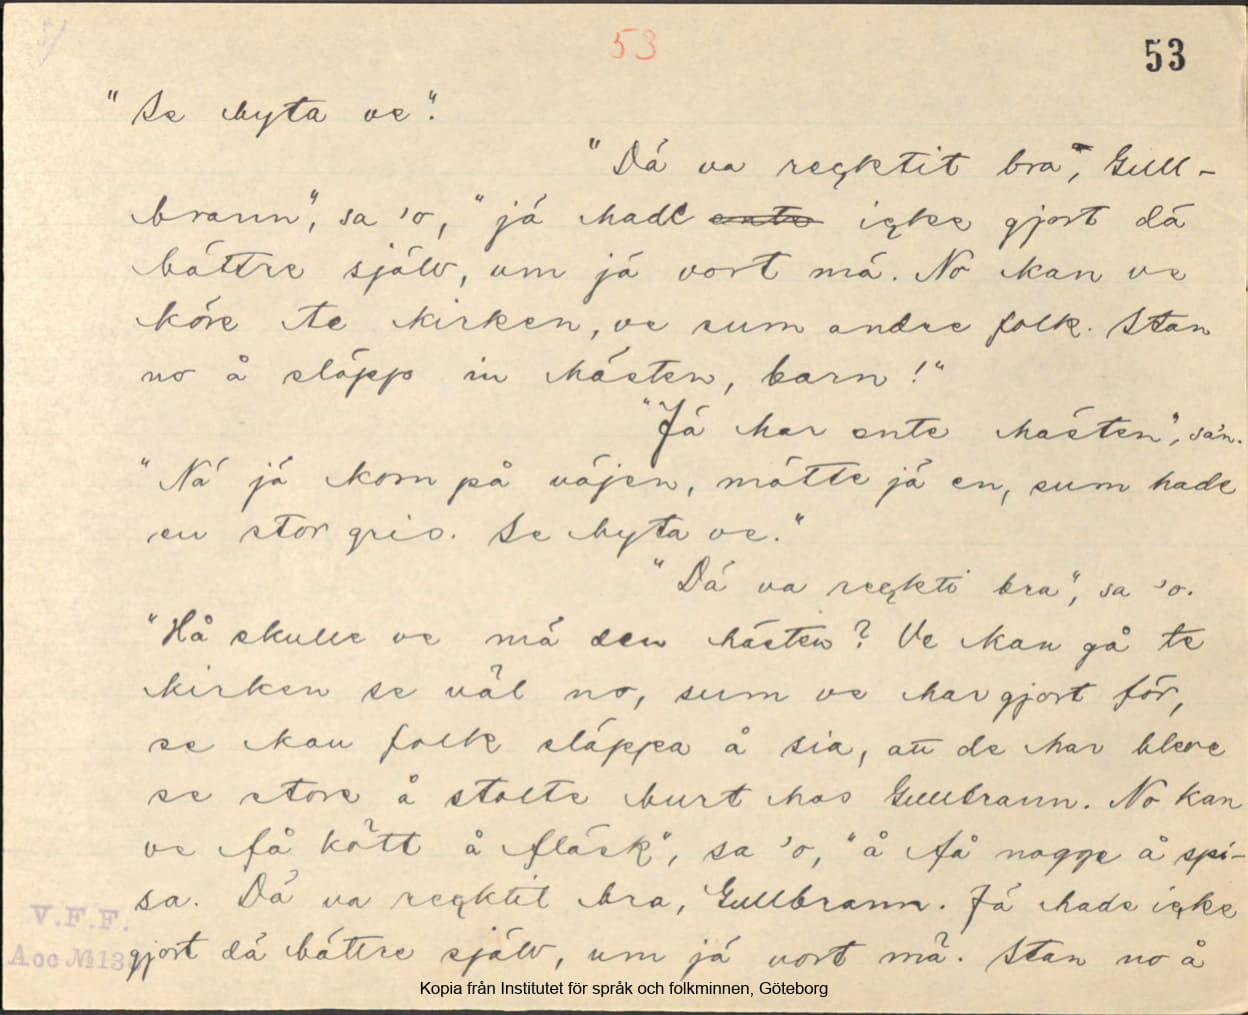 53
53
"Se byta ve".
"Dá va reqktit bra", Gull-
brann", sa 'o, "já hade ente iqke gjort dá
báttre själv, um já vort má. No kan ve
köre te kirken, ve sum andre folk. Stan
no å släpp in hästen, barn!"
"Já har ente hästen", sa'n.
"Ná já kom på väjen, mötte já en, sum hade
en stor gris. Se byta ve."
"Dá va reqkti bra", sa 'o.
"Hå skulle ve má den hästen? Ve kan gå te
kirken se väl no, sum ve har gjort för,
se kan folk släppa å sia, att de har bleve
se store å stolte burt hos Gullbrann. No kan
ve få kött å fläsk", sa 'o, "å få nogge å spi-
sa. Dá va reqktit bra, Gullbrann. Já hade iqke
gjort dá báttre själv, um já vort má. Stan no å
V.F.F.
Acc № 13
Kopia från Institutet för språk och folkminnen, Göteborg